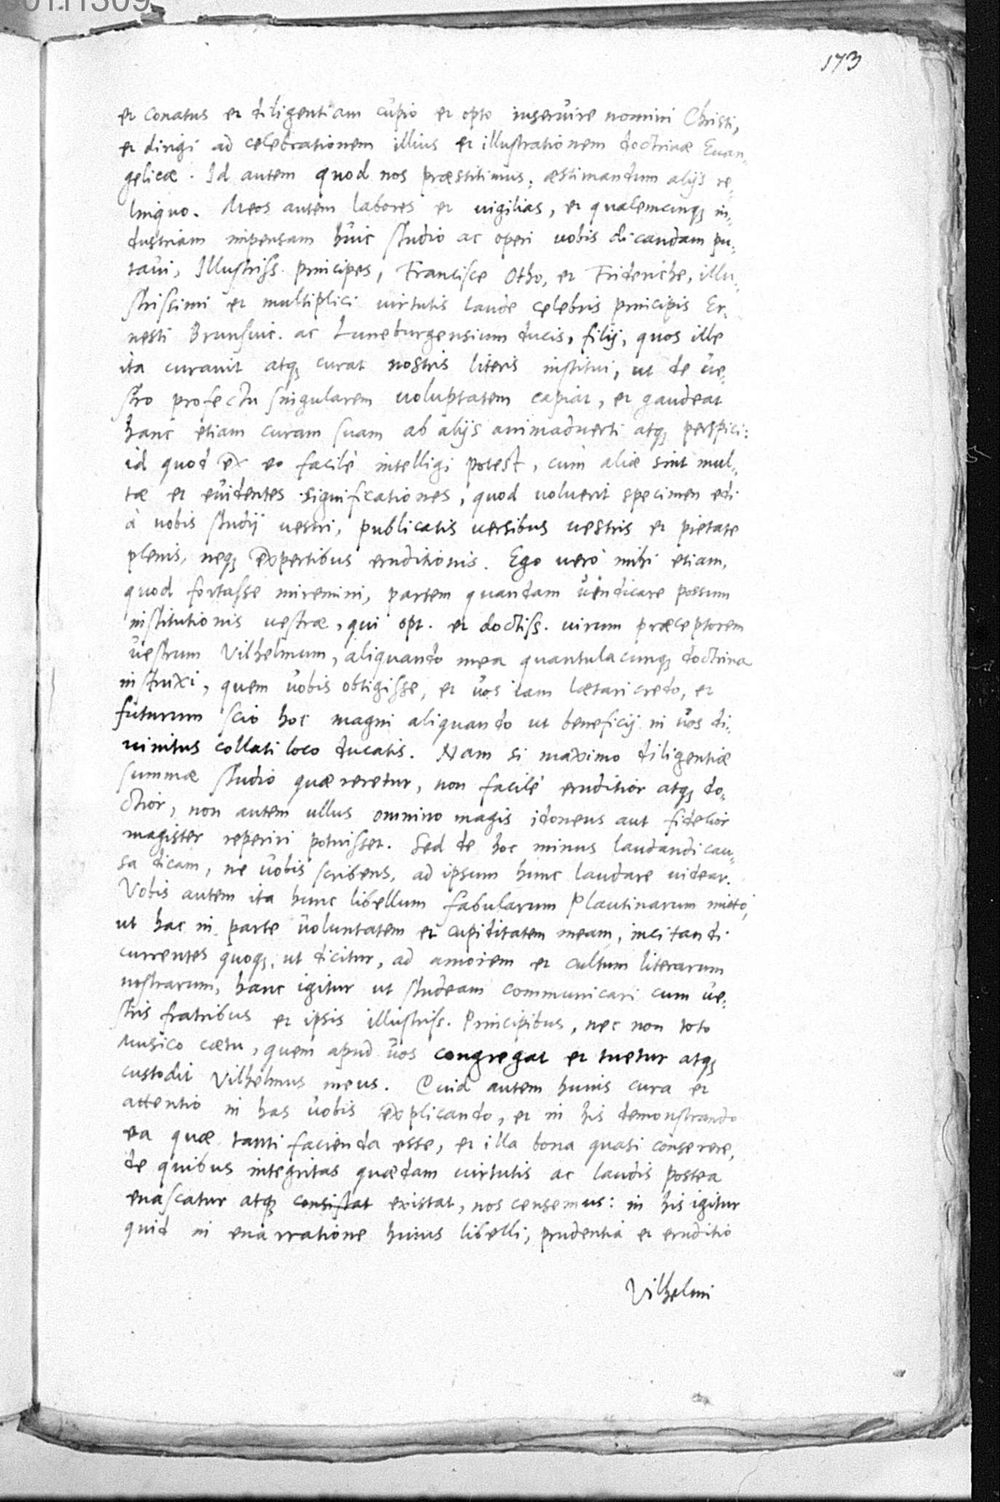 173
et conatus et diligentiam cupio et opto inservire nomini Christi,
et dirigi ad celebrationem illius et illustrationem doctrinæ Euan-
gelicæ. Id autem quod nos præstitimus, æstimandum alijs re-
linquo. Meos autem labores et vigilias, et qualemcunq; in-
dustriam impensam huic studio ac operi vobis dicandam pu-
tavi, Illustriss. principes, Francisce Otho, et Friderice, illu-
strissimi et multiplici virtutis laude celebris principis Er-
nesti Brunsvic. ac Luneburgensium ducis, filij, quos ille
ita curavit atq; curat nostris literis institui, ut de ve-
stro profectu singularem voluptatem capiat, et gaudeat
hanc etiam curam suam ab alijs animadverti atq; perspici:
id quod ex eo facilè intelligi potest, cum aliæ sint mul-
tæ et evidentes significationes, quod voluerit specimen edi
à vobis studij vestri, publicatis versibus vestris et pietate
plenis, neq; expertibus eruditionis. Ego verò mihi etiam,
quod fortasse miremini, partem quandam vendicare possum
institutionis vestræ, qui opt. et doctiss. virum præceptorem
vestrum Vilhelmum, aliquando mea quantulacunq; doctrina
instruxi, quem vobis obtigisse, et vos iam lætari credo, et
futurum scio hoc magni aliquando ut beneficij in vos di-
vinitus collati loco ducatis. Nam si maximo diligentiæ
summæ studio quæreretur, non facilè eruditior atq; do-
ctior, non autem ullus omnino magis idoneus aut fidelior
magister reperiri potuisset. Sed de hoc minus laudandi cau-
sa dicam, ne vobis scribens, ad ipsum hunc laudare videar.
Vobis autem ita hunc libellum fabularum Plautinarum mitto,
ut hac in parte voluntatem et cupiditatem meam, incitandi
currentes quoq; ut dicitur, ad amorem et cultum literarum
nostrarum, hanc igitur ut studeam communicari cum ve-
stris fratribus et ipsis illustriss. Principibus, nec non toto
Musico cœtu, quem apud vos congregat et tuetur atq;
custodit Vilhelmus meus. Quid autem huius cura et
attentio in has vobis explicando, et in his demonstrando
ea quæ tanti facienda esse, et illa bona quasi conserere,
de quibus integritas quædam virtutis ac laudis postea
enascatur atq; consistat existat, nos censemus: in his igitur
quid in enarratione huius libelli, prudentia et eruditio
Vilhelmi